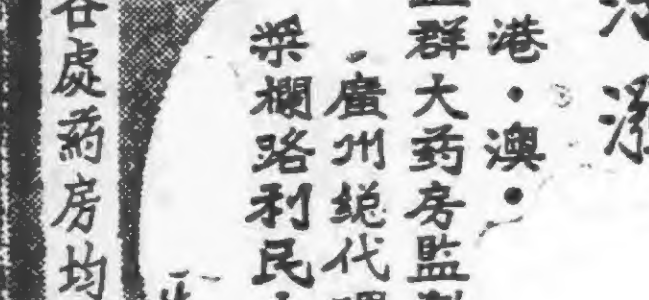 港·澳·
群大药房監
·廣州總代理
槳欄路利民
處药房均